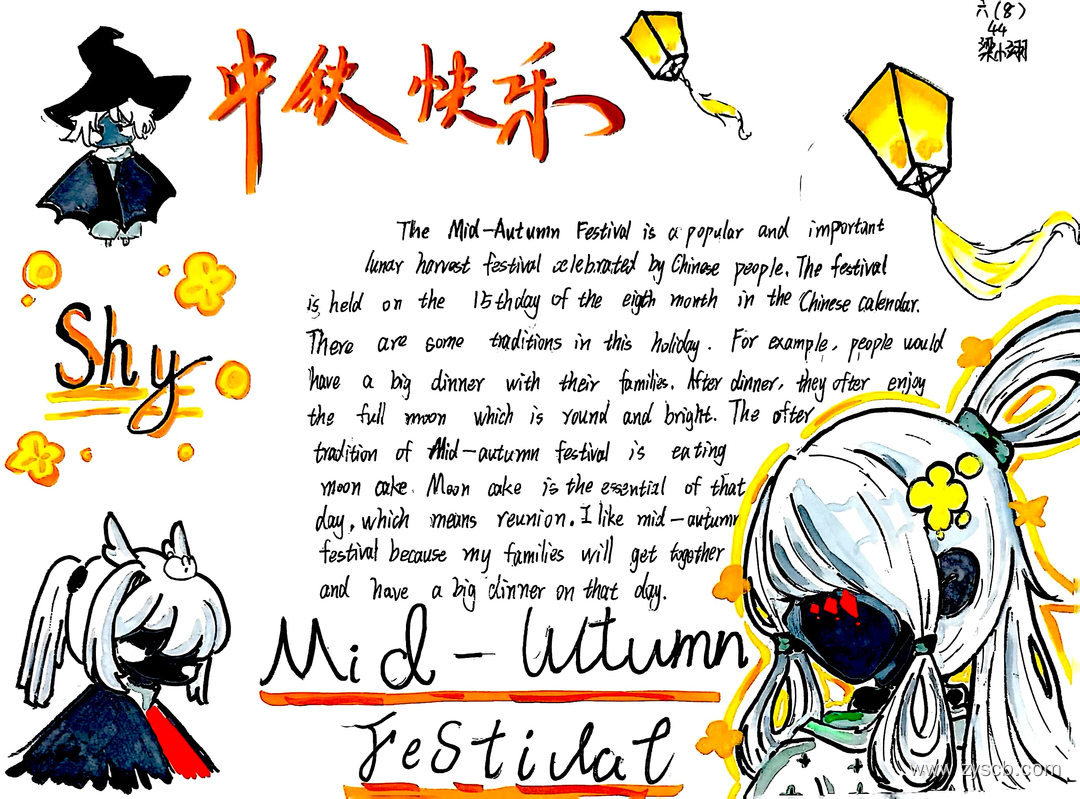 中秋快乐
六(8)
44
梁小翊
The Mid-Autumn Festival is a popular and important
lunar harvest festival celebrated by Chinese people. The festival
is held on the 15thday of the eigth month in the Chinese calendar.
There are some traditions in this holiday. For example, people would
have a big dinner with their families. After dinner, they ofter enjoy
the full moon which is round and bright. The ofter
tradition of Mid-autumn festival is eating
moon cake. Moon cake is the essential of that
day, which means reunion. I like mid-autumn
festival because my families will get together
and have a big dinner on that day.
Shy
Mid-Autumn
Festival
www.zyscb.com